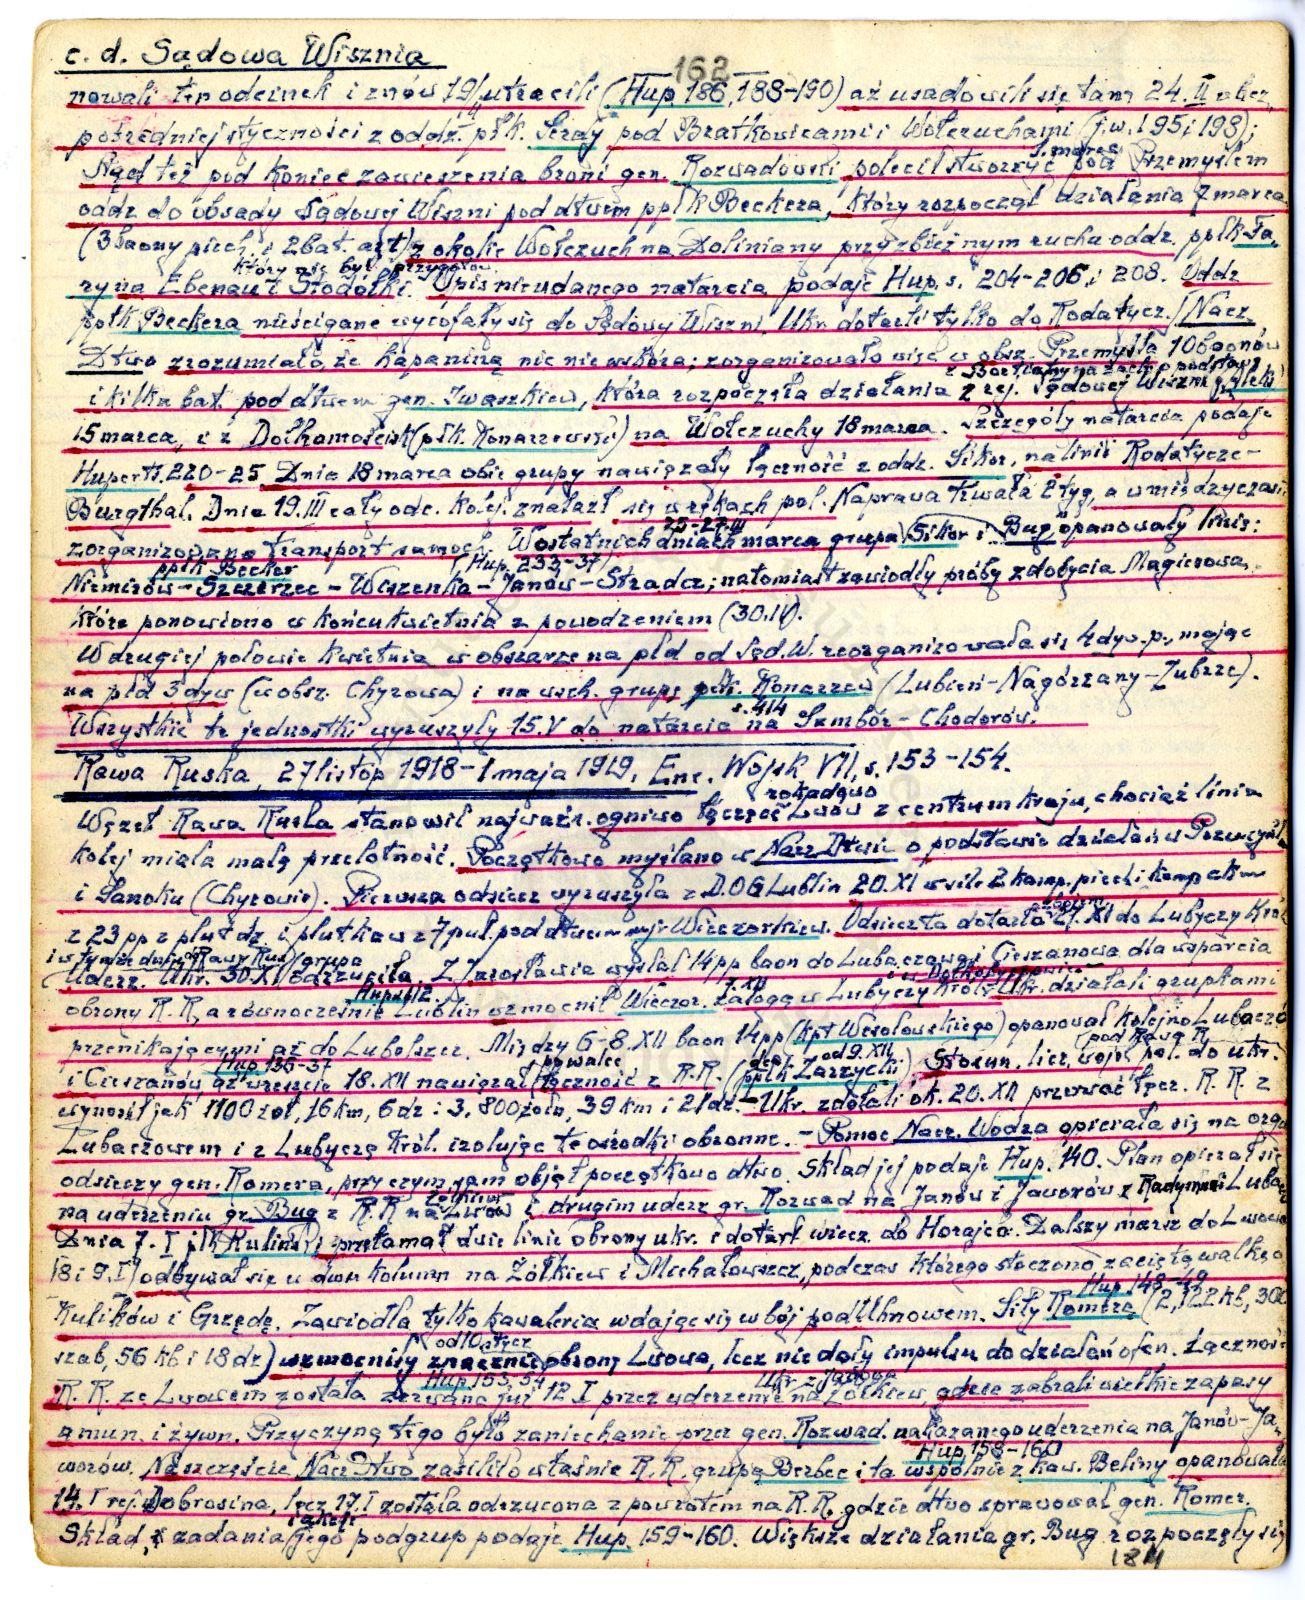 c. d. Sądowa Wisznia
— 162 —
nowali ten odcinek i znów 19/II utracili (Hup. 186, 188-190) aż usadowili się tam 24. II w bez-
pośredniej styczności z oddz. płk. Sczay pod Bratkowicami i Wołczuchami (j.w. 195 i 198);
1. marca
Stąd też pod koniec zawieszenia broni gen. Rozwadowski polecił stworzyć pod Przemyślem
oddz. do obsady Sądowej Wiszni pod dtwem ppłk Beckera, który rozpoczął działania 7 marca
(3 baony piech. i 2 bat. art.) z okolic Wołczuch na Doliniany przy zbieżnym ruchu oddz. ppłk Fa-
który nie był przygotow.
ry na Ebenau i Stodółki. Opis nieudanego natarcia podaje Hup. s. 204-206, i 208. Oddz
ppłk Beckera nieścigane wycofały się do Sądowej Wiszni. Ukr. dotarli tylko do Rodatycz. / Nacz
Dtwo zrozumiało, że kapaniną nic nie wskóra; zorganizowało więc w obsz. Przemyśla 10 baonów
z Bortiatyna na zach. o podstawę
i kilka bat. pod dtwem gen. Iwaszkiew, która rozpoczęła działania z rej. Sądowej Wiszni (gł. Aleks)
15 marca, i z Dołhomościsk (płk. Konarzewski) na Wołczuchy 18 marca. Szczegóły natarcia podaje
Hupert s. 220-25 Dnia 18 marca obie grupy nawiązały łączność z oddz. Sikor, na linii Rodatycze-
Burgthal. Dnia 19. III cały odc. kolej. znalazł się w rękach pol. Naprawa trwała 2 tyg, a w międzyczasie
25-27. III
zorganizowano transport samoch. W ostatnich dniach marca grupa Sikor i Bug opanowały linię:
ppłk Becker (Hup. 233-37)
Niemirów - Szczerzec - Wiszenka - Janów - Stradcz; natomiast zawiodły próby zdobycia Magierowa,
które ponowiono w końcu kwietnia z powodzeniem (30. IV).
W drugiej połowie kwietnia w obszarze na płd od Sąd. W. reorganizowała się 4 dyw. p., mając
na płd 3 dyw (w obsz. Chyrowa) i na wsch. grupę płk. Konarzew (Lubień-Nagórzany-Zubrze).
s. 414
Wszystkie te jednostki wyruszyły 15. V do natarcia na Sambór - Chodorów.
Rawa Ruska, 27 listop 1918 - 1 maja 1919, Enc. Wojsk VII, s. 153-154.
rokadowo
Węzeł Rawa Ruska stanowił najważn. ogniwo łączące Lwów z centrum kraju, chociaż linia
kolej miała małą przelotność. Początkowo myślano w Nacz Dtwie o podstawie działań w Przemyśl.
i Sanoku (Chyrowie). Pierwsza odsiecz wyruszyła z D.OG Lublin 20. XI w sile 2 komp. piech i komp ckm
z 23 pp z plut dz. i plut. kaw z 7 puł. pod dtwem mjr Wieczorkiew. Odsiecz ta dotarła 27. XI do Lubyczy Król
i w tymże dniu do Rawy Rus / grupa
Uderz. Ukr. 30 XI odrzuciła. Z Jarosławia wysłał 14 pp baon do Lubaczowa i Cieszanowa dla wsparcia
Hup. 112
obrony R.R., a równocześnie Lublin wzmocnił Wieczor. Załogą w Lubyczy Król. Ukr. działali grupkami
przenikającymi aż do Lubelszcz. Między 6-8. XII baon 14 pp (kpt Wesołowskiego) opanował kolejno Lubaczó
Hup. 136-37 od 9. XII pod Rawą R,
i Cieszanów, aż wreszcie 18. XII nawiązał łączność z R.R. (ppłk Zarzycki). Stosun. licz. wojs. pol. do ukr.
wynosił jak 1100 żoł, 16 km, 6 dz i 3.800 żołn, 39 km i 21 dz. - Ukr. zdołali ok. 20. XII przerwać łącz. R.R. z
Lubaczowem i z Lubyczą Król. izolując te ośrodki obronne. - Pomoc Nacz. Wodza opierała się na orga
odsieczy gen. Romera, przy czym sam objął początkowo dtwo. Skład jej podaje Hup. 140. Plan opierał się
Żółkiew
na uderzeniu gr. Bug z R.R na Lwów i drugim uderz gr. Rozwad na Janów i Jaworów z Radymna i Lubac
Dnia 7. I płk Rulinś. przełamał dwie linie obrony ukr. i dotarł wiecz. do Horajca. Dalszy marsz do Lwowa
(8 i 9. I) odbywał się w dwu kolumn na Żółkiew i Mechałowszcz, podczas którego stoczono zaciętą walkę o
Hup. 148-49
Kulików i Grzędę. Zawiodła tylko kawaleria wdając się w bój pod Uhnowem. Siły Romera (2,122 kb, 300
od 10 stycz
szab, 56 kb i 18 dz) wzmocniły znacznie obronę Lwowa, lecz nie dały impulsu do działań ofen. Łączność
Hup 153, 54 Ukr z Janowa
R.R. ze Lwowem została zerwana już 12 I przez uderzenie na Żółkiew, gdzie zabrali wielkie zapasy
amun. i żywn. Przyczyną tego było zaniechanie przez gen. Rozwad. nakazanego uderzenia na Janów-Ja-
Hup. 158-160
worów. Na szczęście Nacz Dtwo zasiliło właśnie R.R. grupą Berbec i ta wspólnie z kaw. Beliny opanowała
14. I rej. Dobrosina, lecz 17. I została odrzucona z powrotem na R.R. gdzie dtwo sprawował gen. Romer.
także
Skład, i zadania jego podgrup podaje Hup. 159-160. Większe działania gr. Bug rozpoczęły się
184